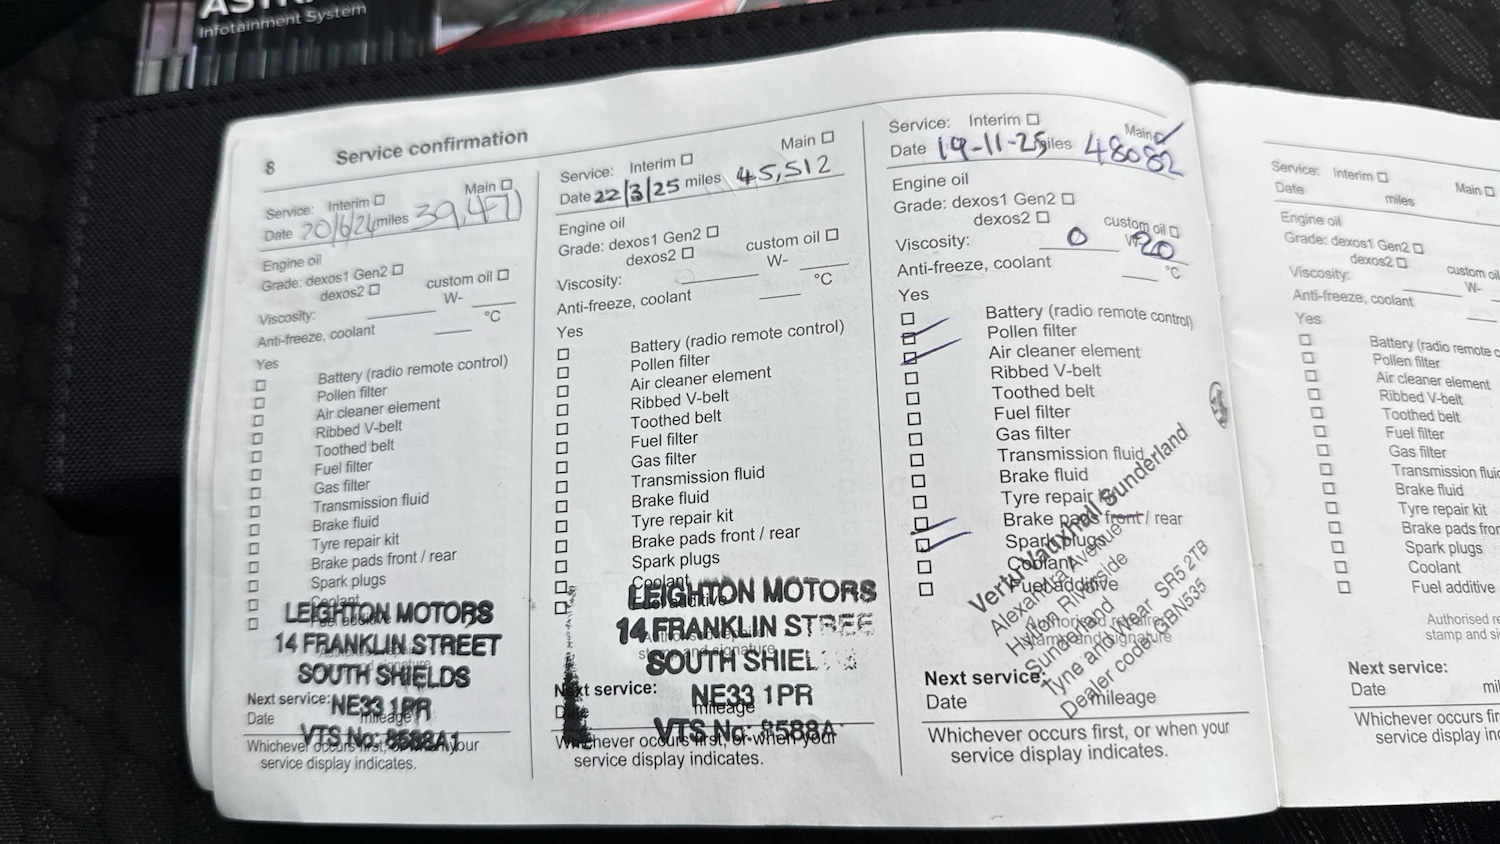 Infotainment System
8 Service confirmation
Service: Interim Main
Date 20/6/24 miles 39,471
Engine oil
Grade: dexos1 Gen2
dexos2 custom oil
Viscosity: W-
Anti-freeze, coolant °C
Yes
Battery (radio remote control)
Pollen filter
Air cleaner element
Ribbed V-belt
Toothed belt
Fuel filter
Gas filter
Transmission fluid
Brake fluid
Tyre repair kit
Brake pads front / rear
Spark plugs
Coolant
Fuel additive
LEIGHTON MOTORS
14 FRANKLIN STREET
SOUTH SHIELDS
NE33 1PR
VTS No: 8588A1
Next service:
Date mileage
Whichever occurs first, or when your
service display indicates.
Service: Interim Main
Date 22/3/25 miles 45,512
Engine oil
Grade: dexos1 Gen2
dexos2 custom oil
Viscosity: W-
Anti-freeze, coolant °C
Yes
Battery (radio remote control)
Pollen filter
Air cleaner element
Ribbed V-belt
Toothed belt
Fuel filter
Gas filter
Transmission fluid
Brake fluid
Tyre repair kit
Brake pads front / rear
Spark plugs
Coolant
Fuel additive
LEIGHTON MOTORS
14 FRANKLIN STREE
SOUTH SHIEL
NE33 1PR
VTS No: 8588A
Next service:
mileage
Whichever occurs first, or when your
service display indicates.
Service: Interim Main
Date 19-11-25 miles 48082
Engine oil
Grade: dexos1 Gen2
dexos2 custom oil
Viscosity: 0 W- 20
Anti-freeze, coolant °C
Yes
Battery (radio remote control)
Pollen filter
Air cleaner element
Ribbed V-belt
Toothed belt
Fuel filter
Gas filter
Transmission fluid
Brake fluid
Tyre repair kit
Brake pads front / rear
Spark plugs
Coolant
Fuel additive
Authorised repairer
stamp and signature
Vertu Vauxhall Sunderland
Alexandra Avenue
Hylton Riverside
Sunderland
Tyne and Wear SR5 2TB
Dealer code: BBN535
Next service:
Date mileage
Whichever occurs first, or when your
service display indicates.
Service: Interim Main
Date miles
Engine oil
Grade: dexos1 Gen2
dexos2 custom oil
Viscosity: W-
Anti-freeze, coolant
Yes
Battery (radio remote c
Pollen filter
Air cleaner element
Ribbed V-belt
Toothed belt
Fuel filter
Gas filter
Transmission fluid
Brake fluid
Tyre repair kit
Brake pads fron
Spark plugs
Coolant
Fuel additive
Authorised re
stamp and si
Next service:
Date mil
Whichever occurs fir
service display in